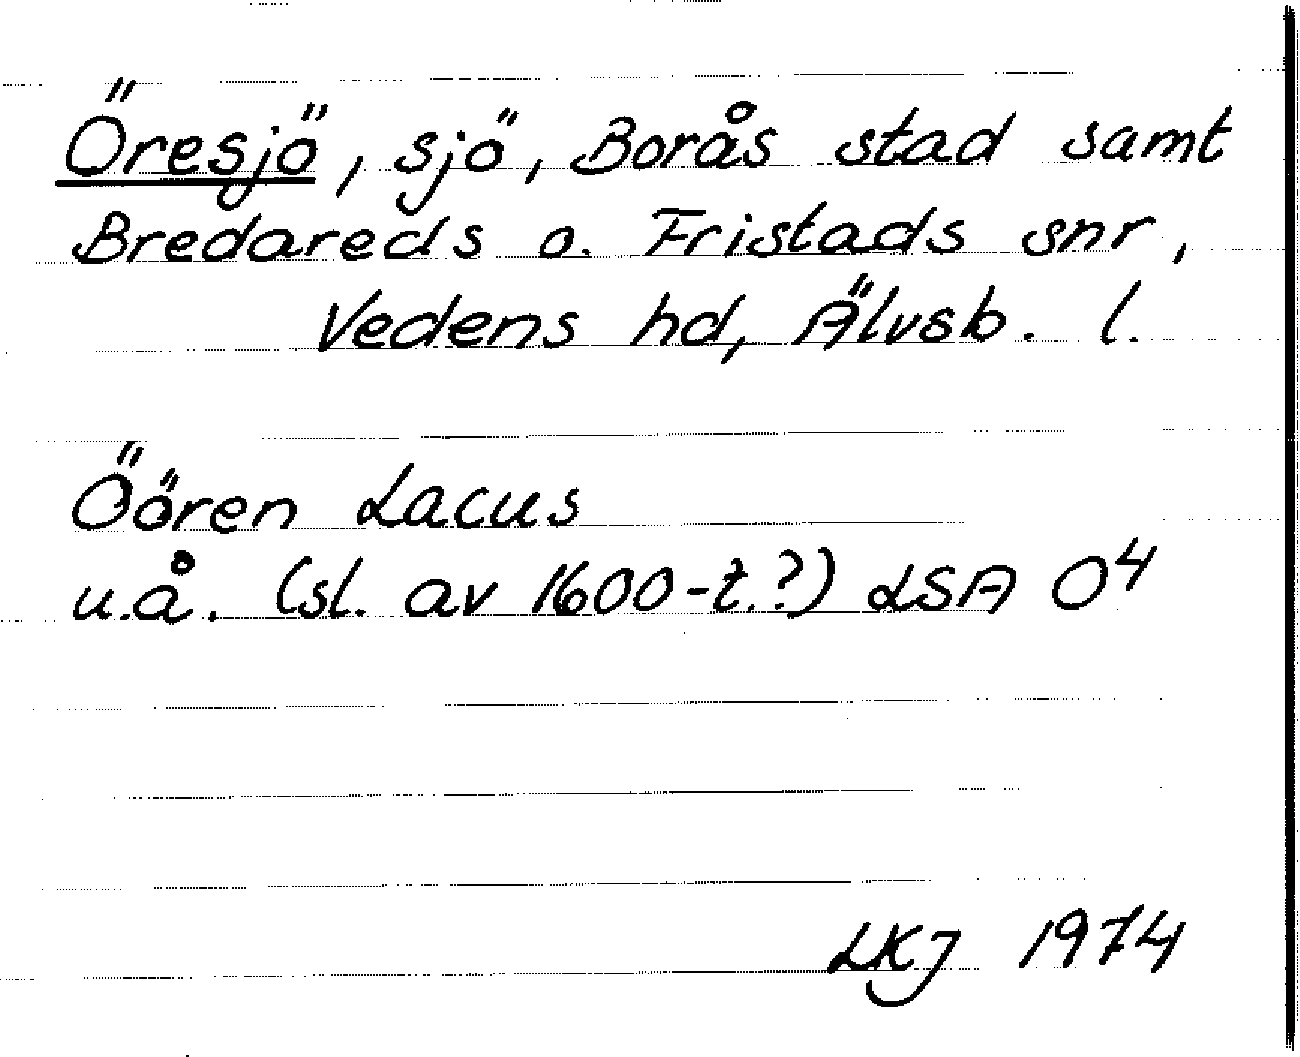 Öresjö, sjö, Borås stad samt
Bredareds o. Fristads snr,
Vedens hd, Älvsb. l.
Öören Lacus
u.å. (sl. av 1600-t.?) LSA O4
LKJ 1974